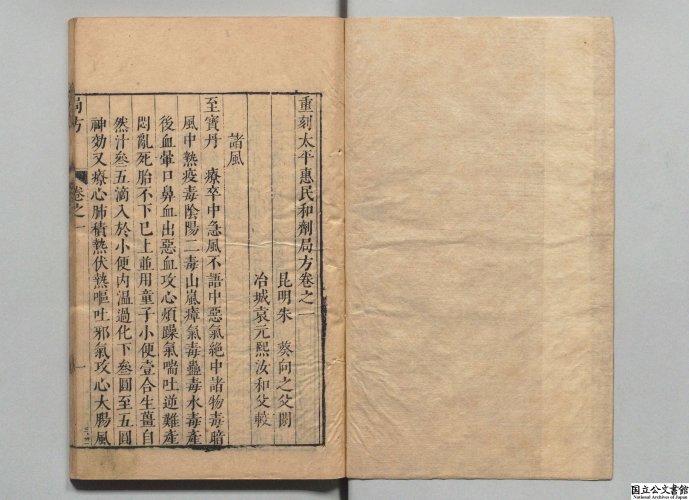 重刻太平惠民和劑局方卷之一
昆明朱 葵向之父閱
冶城袁元熙汝和父較
諸風
至寶丹 療卒中急風不語中惡氣絕中諸物毒暗
風中熱疫毒陰陽二毒山嵐瘴氣毒蠱毒水毒產
後血暈口鼻血出惡血攻心煩躁氣喘吐逆難產
悶亂死胎不下已上並用童子小便壹合生薑自
然汁叄五滴入於小便內温過化下叄圓至五圓
神効又療心肺積熱伏熱嘔吐邪氣攻心大腸風
局方
卷之一
一
国立公文書館
National Archives of Japan